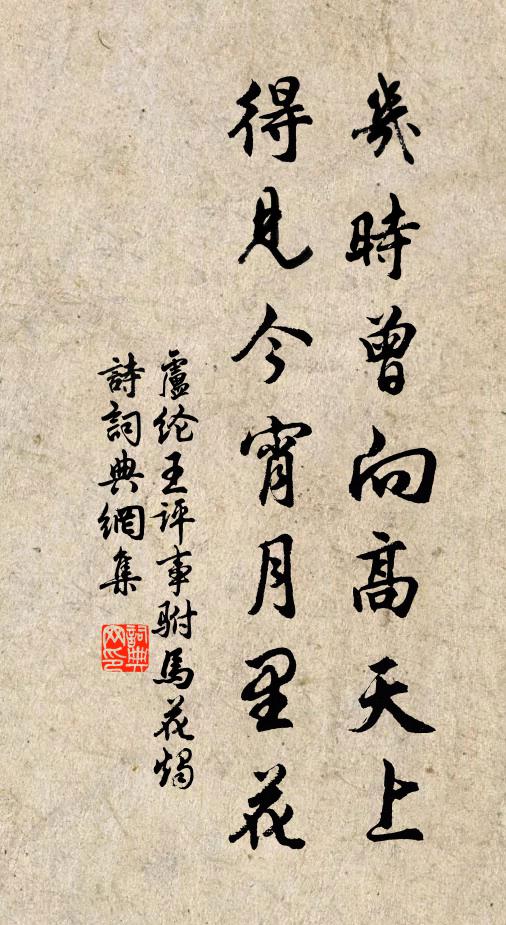 幾時曾向高天上
得見今宵月里花
盧纶王评事駙馬花燭
詩詞典網集
詞典
网印